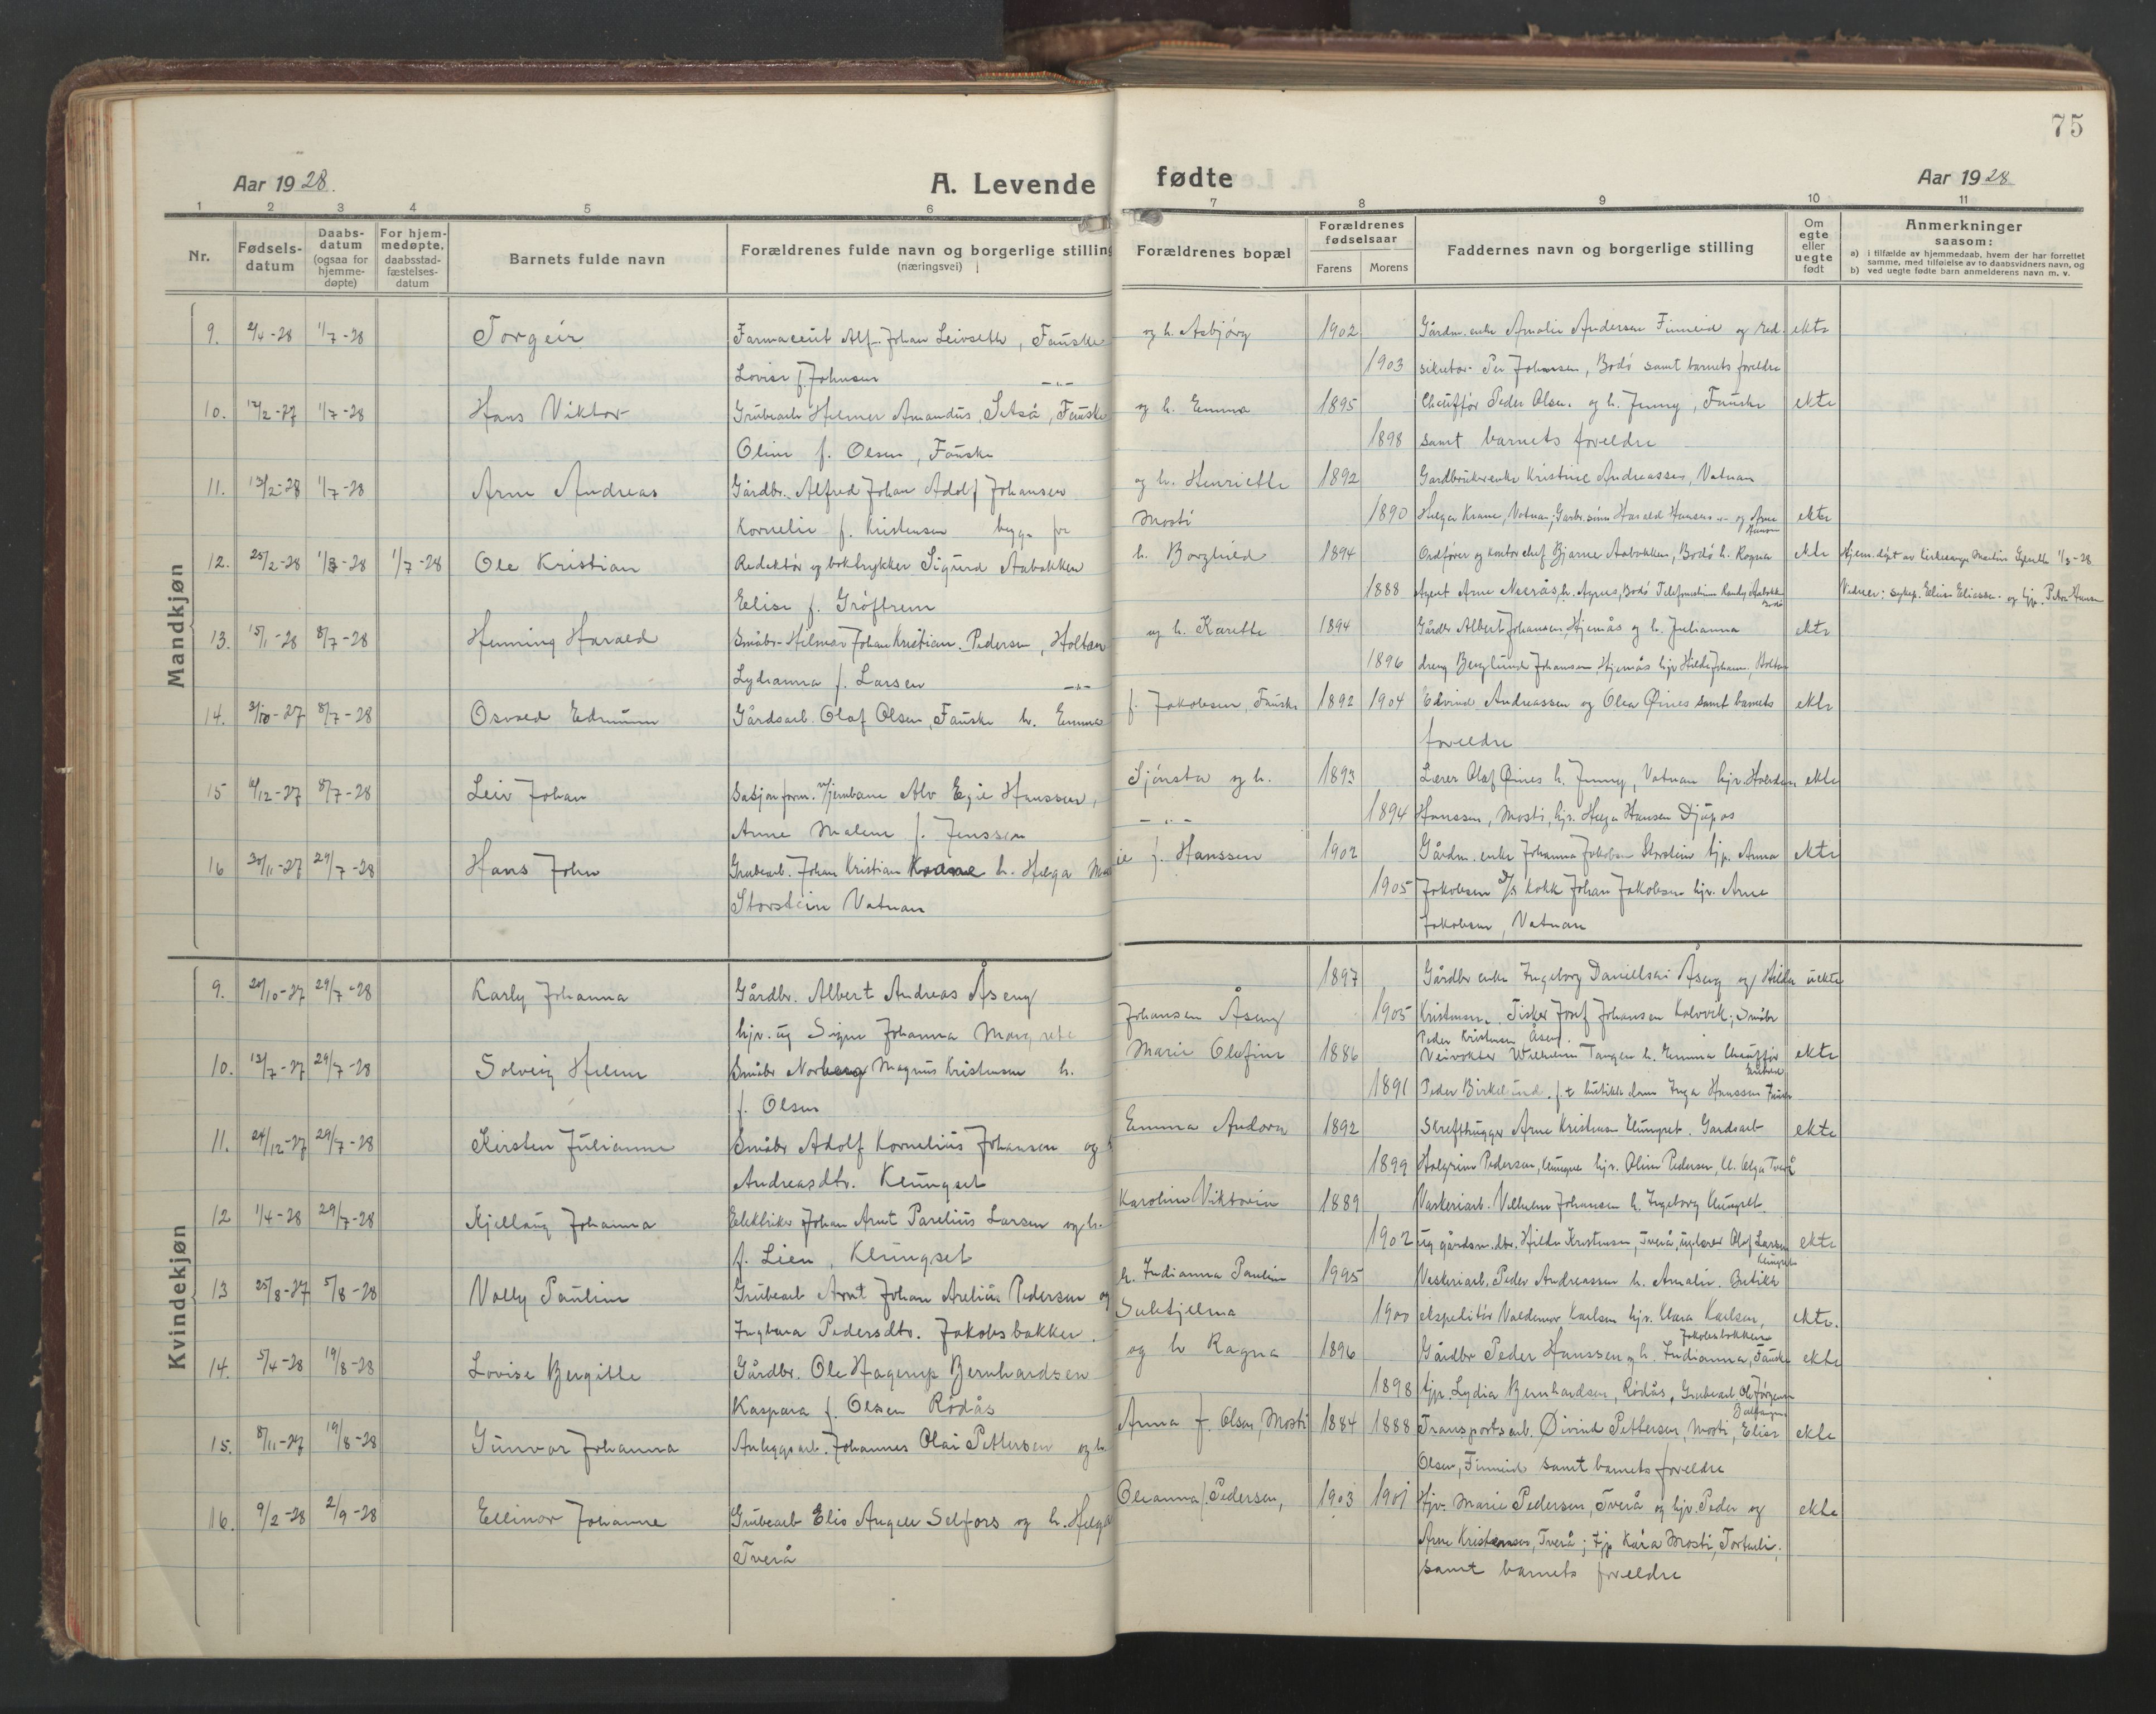 75
Aar 1928.
A. Levende fødte
Aar 1928
1 2 3 4 5 6 7 8 9 10 11
Nr.
Fødsels-
datum
Daabs-
datum
(ogsaa for
hjemme-
døpte)
For hjem-
medøpte,
daabsstad-
fæstelses-
datum
Barnets fulde navn
Forældrenes fulde navn og borgerlige stilling
(næringsvei)
Forældrenes bopæl
Forældrenes
fødselsaar
Farens Morens
Faddernes navn og borgerlige stilling
Om
egte
eller
uegte
født
Anmerkninger
saasom:
a) i tilfælde av hjemmedaab, hvem der har forrettet
samme, med tilføielse av to daabsvidners navn, og
b) ved uegte fødte barn anmelderens navn m. v.
Mandkjøn
9. 2/4-28 1/7-28 Torgeir Farmaceut Alf Johan Leivseth, Fauske og h. Asbjørg 1902 Gårdm. enke Amalie Andersen Finneid og red. ekte
Lovise f. Johnsen -"- 1903 sekretær Per Johansen, Bodø samt barnets foreldre
10. 12/2-27 1/7-28 Hans Viktor Grubearb Helmer Amandus Setså, Fauske og h. Emma 1895 Chauffør Peder Olsen og h. Jenny, Fauske ekte
Oline f. Olsen, Fauske 1898 samt barnets foreldre
11. 13/2-28 1/7-28 Arne Andreas Gårdbr. Alfred Johan Adolf Johansen og h. Henriette 1892 Gardbrukerenke Kristine Andreassen, Vatnan
Kornelie f. Kristensen byg. fra Mosti 1890 Helga Krane, Vatnan; Garbr. sønn Harald Hansen -"- og Arne Hansen ekte
12. 25/2-28 1/3-28 1/7-28 Ole Kristian Redaktør og boktrykker Sigurd Aabakken h. Borghild 1894 Ordfører og kontorchef Bjarne Aabakken, Bodø h. Ragna ekte Hjem. døpt av 1/3-28
Elise f. Grøftrem 1888 Agent Arne Neerås, h. Agnes, Bodø Bodø Vidner: sykep. Elise Eliassen og hjp. Petra Hansen
13. 15/1-28 8/7-28 Henning Harald Småbr. Hilmar Johan Kristian Pedersen, Holtan og h. Karette 1894 Gårdbr Albert Johansen, Hjemås og h. Julianna ekte
Lydianna f. Larsen -"- 1896 dreng Berglund Johansen, Hjemås hjv Hilda Johans., Holtan
14. 3/10-27 8/7-28 Osvald Edmunn Gårdsarb. Olaf Olsen, Fauske h. Emma f. Jakobsen, Fauske 1892 1904 Edvind Andreassen og Olea Øines samt barnets ekte
foreldre
15 10/12-27 8/7-28 Leiv Johan v/jernbane Alv Egil Hanssen, Sjønsta og h. 1893 Lærer Olaf Øines h. Jenny, Vatnan hjv. ekte
Anne Malene f. Jenssen -"- 1894 Hanssen, Mosti, hjv. Helga Hansen Djupos
16 30/11-27 29/7-28 Hans John Grubearb. Johan Kristian Krane h. Helga Marie f. Hanssen 1902 Gårdm. enke Johanna Jakobsen Storstein hjp. Anna ekte
Storstein Vatnan 1905 Jakobsen kokk Johan Jakobsen hjv. Arne
Jakobsen, Vatnan
Kvindekjøn
9. 20/10-27 29/7-28 Karly Johanna Gårdbr. Albert Andreas Åseng 1897 Gårdbr enke Ingeborg Danielsen Åseng og Hilda uekte
hjv. ug Signe Johanna Margrete Johansen Åseng 1905 Kristensen, Fisker Josef Johansen Kolvvik; Småbr
Peder Kristensen Åsen.
10. 13/7-27 29/7-28 Solveig Helene Småbr Norberg Magnus Kristensen h. Marie Olefine 1886 Veivokter Wilhelm Tangen h. Emma Chauffør ekte
f. Olsen 1891 Peder Birkelund, f.t. butikkdame Inga Hanssen
11. 24/12-27 29/7-28 Kirsten Julianne Småbr Adolf Kornelius Johansen og h Emma Andora 1892 Skrefthugger Arne Kristensen Klungset. Gardsarb ekte
Andreasdtr. Klungset 1899 Halgrim Pedersen, Klungset hjv. Oline Pedersen, Kl. Olga Tverå
12 1/4-28 29/7-28 Kjellaug Johanna Elektriker Johan Arnt Parelius Larsen og h. Karoline Viktoria 1889 Vaskeriarb. Vilhelm Johansen h. Ingeborg Klungset.
f. Lien, Klungset 1902 ug gårdm. dtr. Hilda Kristensen, Tverå, Olaf Larsen Klungset ekte
13 25/8-27 5/8-28 Vally Pauline Grubearb Arnt Johan Arelius Pedersen og h. Indianna Pauline 1995 Vaskeriarb. Peder Andreassen h. Amalie. Butikk
Ingbara Pedersdtr. Jakobsbakken. Sulitjelma 1900 ekspeditør Valdemar Karlsen hjv. Clara Karlsen, Jakobsbakken ekte.
14. 5/4-28 19/8-28 Lovise Bergitte Gårdbr. Ole Hagerup Bernhardsen og h Ragna 1896 Gårdbr Peder Hanssen og h. Indianna, Fauske ekte
Kaspara f. Olsen Rødås 1898 hjp. Lydia Bernhardsen, Rødås, Grubearb Ole Jørgensen
15. 8/11-27 19/8-28 Gunvor Johanna Anleggsarb. Johannes Olai Pettersen og h. Anna f. Olsen, Mosti 1884 1888 Transportarb. Øivind Pettersen, Mosti, Elise ekte
Olsen, Finneid samt barnets foreldre
16. 9/2-28 2/9-28 Ellinor Johanne Grubearb Elis Angell Selfors og h. Helga Oleanna f. Pedersen, 1903 1901 Hjv. Marie Pedersen, Tverå og hjv. Peder og ekte
Tverå Arne Kristensen, Tverå; tjp Kåra Mosti,
samt barnets foreldre